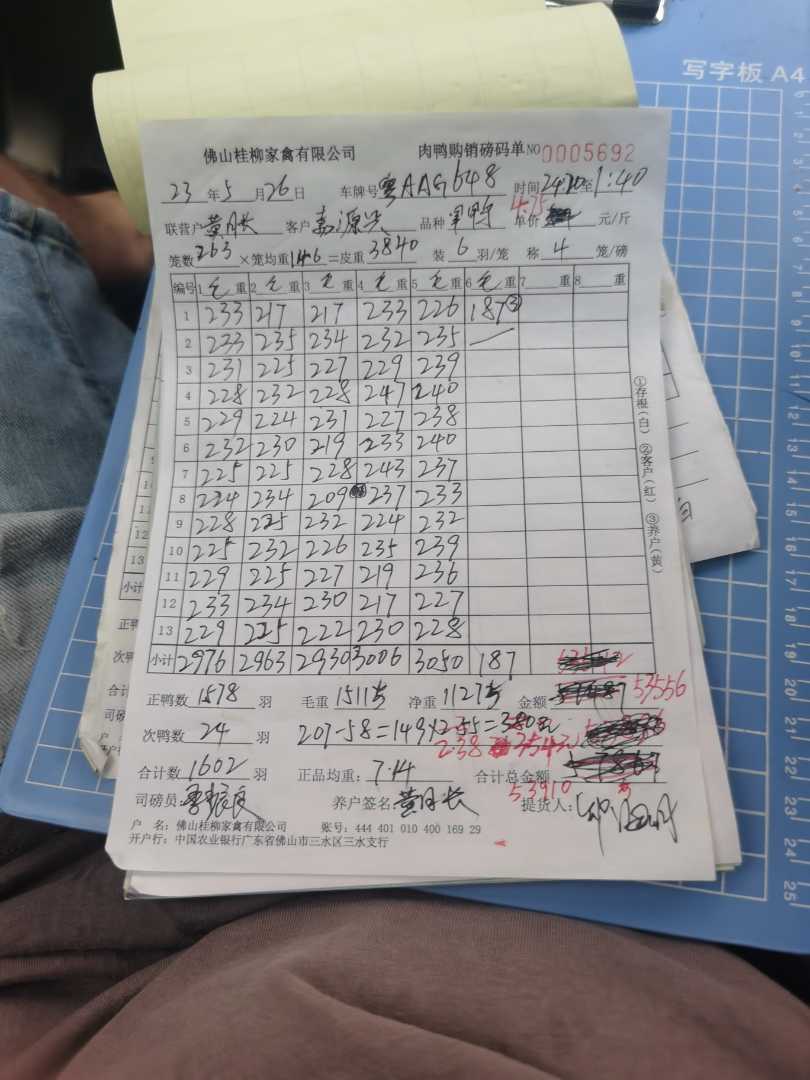 写字板 A4
佛山桂柳家禽有限公司 肉鸭购销磅码单 NO 0005692
23 年 5 月 26 日 车牌号 粤AAG648 时间 至 1:40
4.75
联营户 黄月长 客户 嘉源 品种 单价 元/斤
笼数 263 ×笼均重 14.6 =皮重 3840 装 6 羽/笼 称 4 笼/磅
编号 1 毛 重 2 毛 重 3 毛 重 4 毛 重 5 毛 重 6 毛 重 7 重 8 重
1 233 217 217 233 226 187 ③
2 233 235 234 232 235
3 231 225 227 229 239
4 228 232 228 247 240
5 229 224 231 227 238
6 232 230 219 233 240
7 225 225 228 243 237
8 224 234 209 237 233
9 228 225 232 224 232
10 225 232 226 235 239
11 229 225 227 219 236
12 233 234 230 217 227
13 229 225 222 230 228
小计 2976 2963 2930 3006 3050 187
正鸭数 1578 羽 毛重 净重 金额 53556
次鸭数 24 羽 207-58=149×2.55=380元
2.38 354元
合计数 1602 羽 正品均重: 7.14 合计总金额
53910
司磅员: 养户签名: 黄月长 提货人:
户 名: 佛山桂柳家禽有限公司 账号: 444 401 010 400 169 29
开户行: 中国农业银行广东省佛山市三水区三水支行
①存根(白) ②客户(红) ③养户(黄)